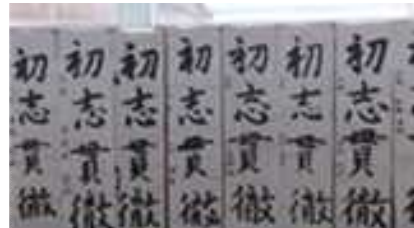 初志貫徹
初志貫徹
初志貫徹
初志貫徹
初志貫徹
初志貫徹
初志貫徹